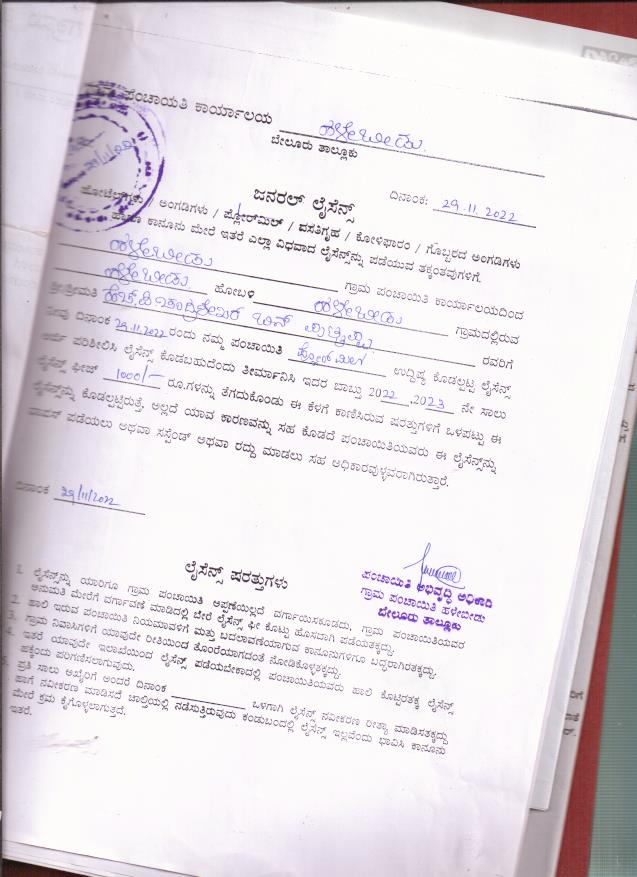 ಪಂಚಾಯತಿ ಕಾರ್ಯಾಲಯ ಹಳೇಬೀಡು
ಬೇಲೂರು ತಾಲ್ಲೂಕು
29/11/22
ಜನರಲ್ ಲೈಸೆನ್ಸ್
ದಿನಾಂಕ: 29.11.2022
ಹೋಟೆಲ್‌ಗಳು / ಅಂಗಡಿಗಳು / ಫ್ಲೋರ್‌ಮಿಲ್ / ವಸತಿಗೃಹ / ಕೋಳಿಫಾರಂ / ಗೊಬ್ಬರದ ಅಂಗಡಿಗಳು
ಹಾಗೂ ಕಾನೂನು ಮೇರೆ ಇತರೆ ಎಲ್ಲಾ ವಿಧವಾದ ಲೈಸೆನ್ಸ್‌ನ್ನು ಪಡೆಯುವ ತಕ್ಕಂತವುಗಳಿಗೆ.
ಹಳೇಬೀಡು ಗ್ರಾಮ ಪಂಚಾಯಿತಿ ಕಾರ್ಯಾಲಯದಿಂದ
ಹಳೇಬೀಡು ಹೋಬಳಿ ಹಳೇಬೀಡು ಗ್ರಾಮದಲ್ಲಿರುವ
ಶ್ರೀ/ಶ್ರೀಮತಿ ಬಿನ್ ರವರಿಗೆ
ನೀವು ದಿನಾಂಕ 29.11.2022 ರಂದು ನಮ್ಮ ಪಂಚಾಯಿತಿ ಉದ್ದಿಷ್ಯ ಕೊಡಲ್ಪಟ್ಟ ಲೈಸೆನ್ಸ್
ಅರ್ಜಿ ಪರಿಶೀಲಿಸಿ ಲೈಸೆನ್ಸ್ ಕೊಡಬಹುದೆಂದು ತೀರ್ಮಾನಿಸಿ ಇದರ ಬಾಬ್ತು 2022, 2023 ನೇ ಸಾಲು
ಲೈಸೆನ್ಸ್ ಫೀಜ್ 1000/- ರೂ.ಗಳನ್ನು ತೆಗದುಕೊಂಡು ಈ ಕೆಳಗೆ ಕಾಣಿಸಿರುವ ಷರತ್ತುಗಳಿಗೆ ಒಳಪಟ್ಟು ಈ
ಲೈಸೆನ್ಸ್‌ನ್ನು ಕೊಡಲ್ಪಟ್ಟಿರುತ್ತೆ, ಅಲ್ಲದೆ ಯಾವ ಕಾರಣವನ್ನು ಸಹ ಕೊಡದೆ ಪಂಚಾಯಿತಿಯವರು ಈ ಲೈಸೆನ್ಸ್‌ನ್ನು
ವಾಪಸ್ ಪಡೆಯಲು ಅಥವಾ ಸಸ್ಪೆಂಡ್ ಅಥವಾ ರದ್ದು ಮಾಡಲು ಸಹ ಅಧಿಕಾರವುಳ್ಳವರಾಗಿರುತ್ತಾರೆ.
ದಿನಾಂಕ 29/11/2022
ಲೈಸೆನ್ಸ್ ಷರತ್ತುಗಳು
ಪಂಚಾಯಿತಿ ಅಭಿವೃದ್ಧಿ ಅಧಿಕಾರಿ
ಗ್ರಾಮ ಪಂಚಾಯಿತಿ ಹಳೇಬೀಡು
ಬೇಲೂರು ತಾಲ್ಲೂಕು
1. ಲೈಸೆನ್ಸ್‌ನ್ನು ಯಾರಿಗೂ ಗ್ರಾಮ ಪಂಚಾಯಿತಿ ಅಪ್ಪಣೆಯಿಲ್ಲದೆ ವರ್ಗಾಯಿಸಕೂಡದು, ಗ್ರಾಮ ಪಂಚಾಯಿತಿಯವರ
ಅನುಮತಿ ಮೇರೆಗೆ ವರ್ಗಾವಣೆ ಮಾಡಿದಲ್ಲಿ ಬೇರೆ ಲೈಸೆನ್ಸ್ ಫೀ ಕೊಟ್ಟು ಹೊಸದಾಗಿ ಪಡೆಯತಕ್ಕದ್ದು.
2. ಹಾಲಿ ಇರುವ ಪಂಚಾಯಿತಿ ನಿಯಮಾವಳಿಗೆ ಮತ್ತು ಬದಲಾವಣೆಯಾಗುವ ಕಾನೂನುಗಳಿಗೂ ಬದ್ಧರಾಗಿರತಕ್ಕದ್ದು.
3. ಗ್ರಾಮ ನಿವಾಸಿಗಳಿಗೆ ಯಾವುದೇ ರೀತಿಯಿಂದ ತೊಂದರೆಯಾಗದಂತೆ ನೋಡಿಕೊಳ್ಳತಕ್ಕದ್ದು.
4. ಇತರೆ ಯಾವುದೇ ಇಲಾಖೆಯಿಂದ ಲೈಸೆನ್ಸ್ ಪಡೆಯಬೇಕಾದಲ್ಲಿ ಪಂಚಾಯಿತಿಯವರು ಹಾಲಿ ಕೊಟ್ಟಿರತಕ್ಕ ಲೈಸೆನ್ಸ್
ಹಕ್ಕೆಂದು ಪರಿಗಣಿಸಲಾಗುವುದು.
5. ಪ್ರತಿ ಸಾಲು ಅಖೈರಿಗೆ ಅಂದರೆ ದಿನಾಂಕ ಒಳಗಾಗಿ ಲೈಸೆನ್ಸ್ ನವೀಕರಣ ರೀತ್ಯಾ ಮಾಡಿಸತಕ್ಕದ್ದು
ಹಾಗೆ ನವೀಕರಣ ಮಾಡಿಸದೆ ಚಾಲ್ತಿಯಲ್ಲಿ ನಡೆಸುತ್ತಿರುವುದು ಕಂಡುಬಂದಲ್ಲಿ ಲೈಸೆನ್ಸ್ ಇಲ್ಲವೆಂದು ಭಾವಿಸಿ ಕಾನೂನು
ಮೇರೆ ಕ್ರಮ ಕೈಗೊಳ್ಳಲಾಗುತ್ತದೆ.
ಇತರೆ.